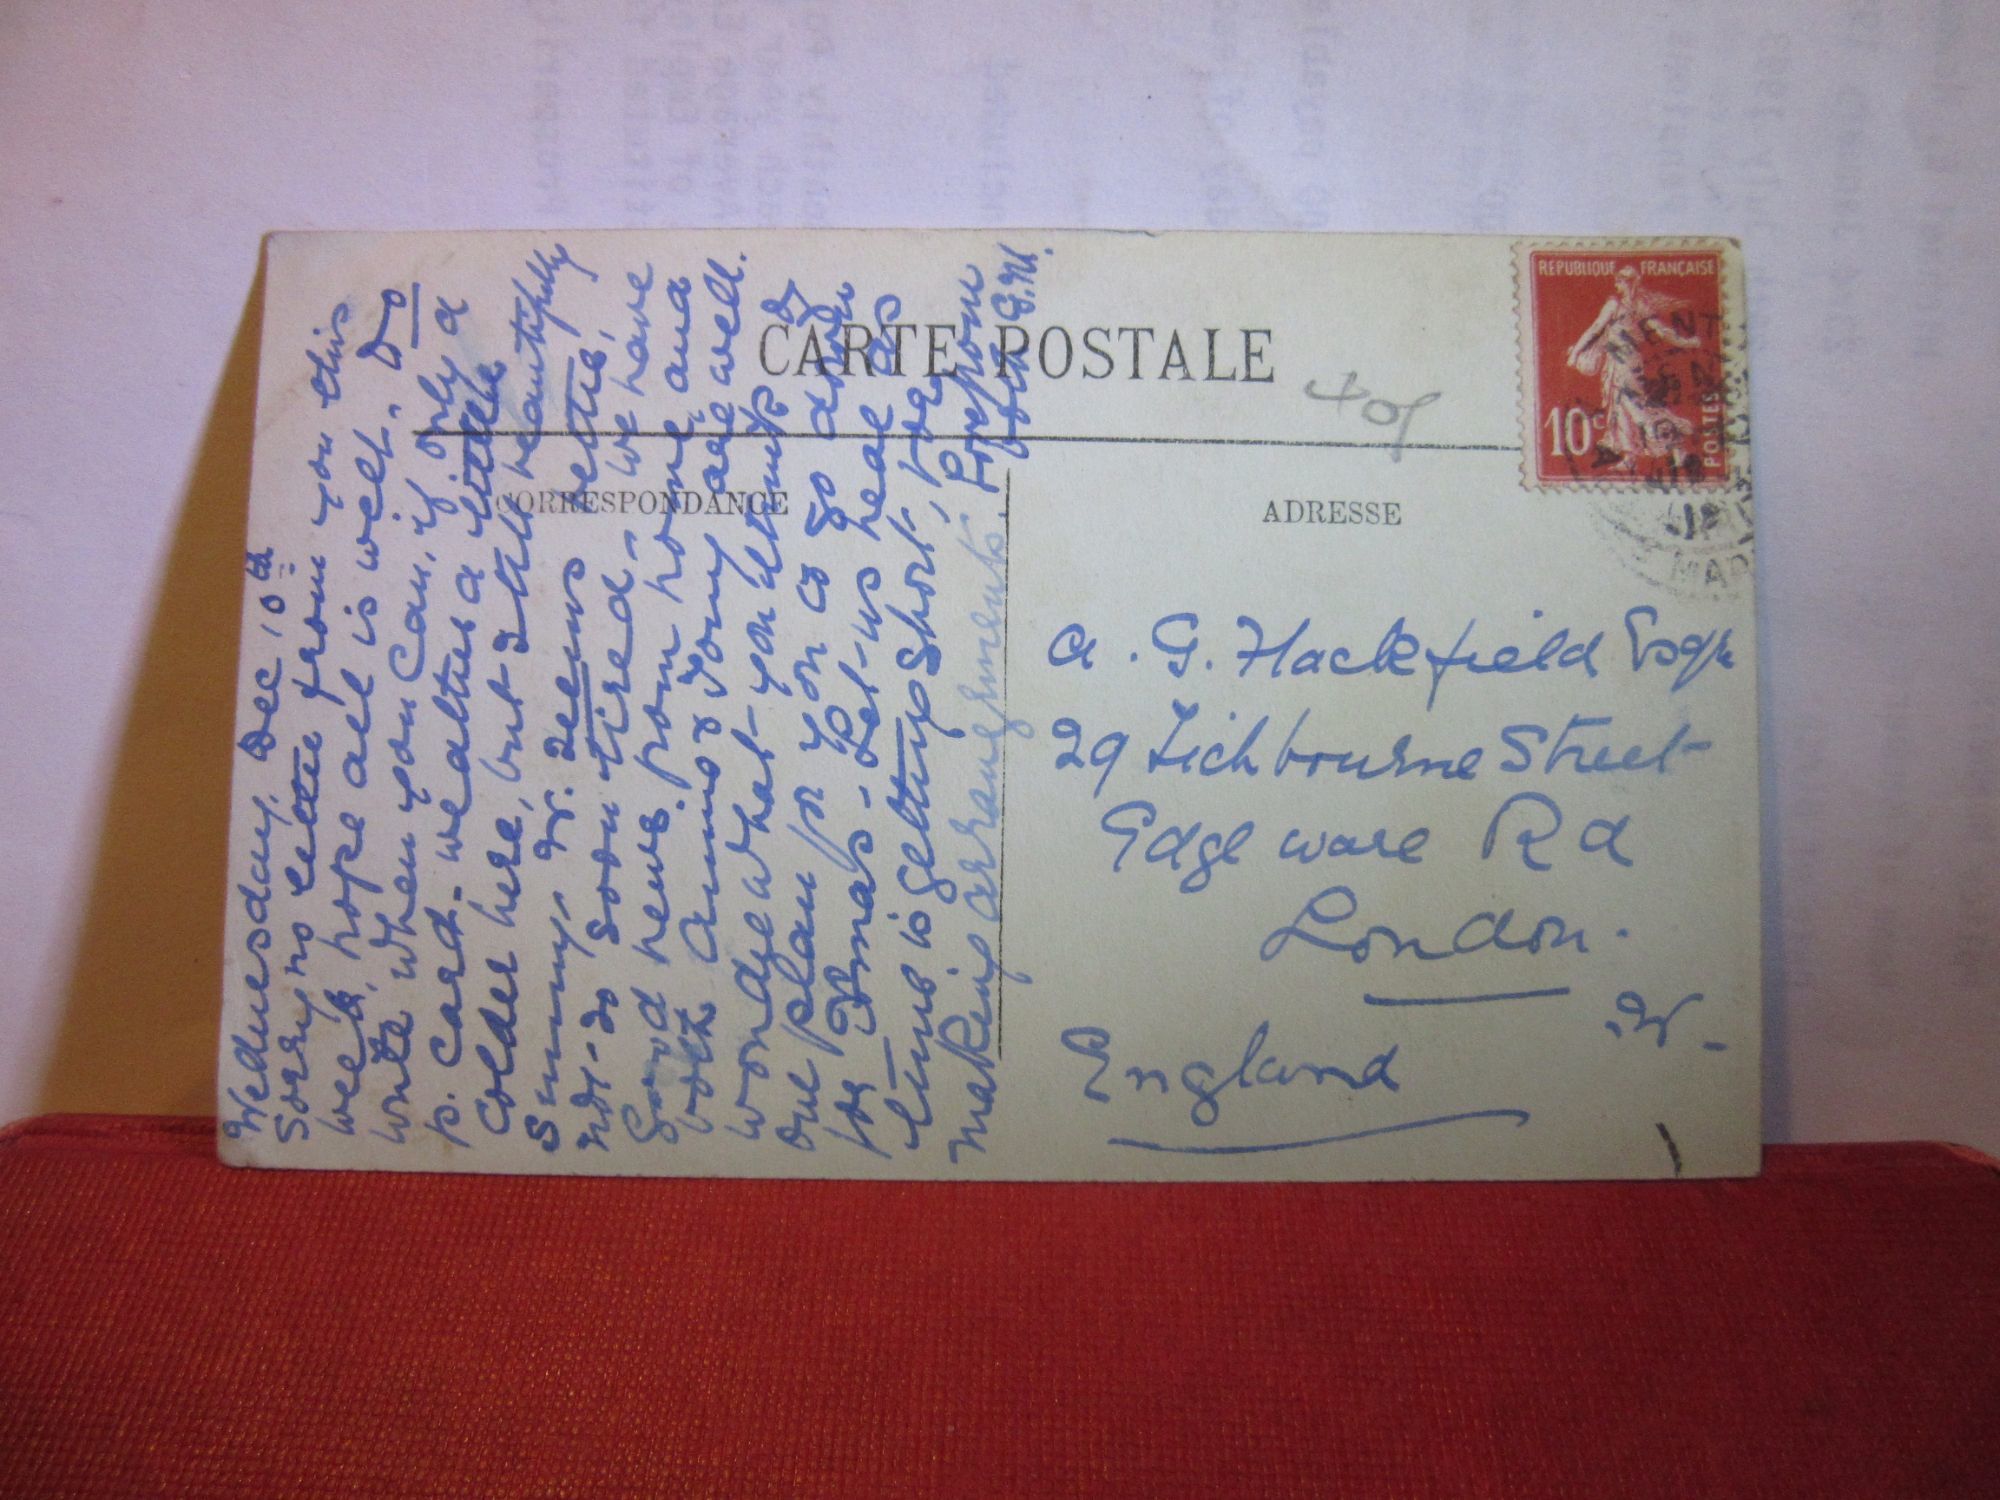 CARTE POSTALE
CORRESPONDANCE
ADRESSE
REPUBLIQUE FRANÇAISE
10c
POSTES
MENT
MAR
Wednesday, Dec 10th
Sorry no letter from you this
week, hope all is well. Do
write when you can, if only a
p. card - weather a little
colder here, but still beautifully
sunny. Gr. seems better,
not so soon tired - we have
Good news from home, and
both Annie & Tom are well.
wonder what you think of
our plan for you to go down
for Xmas - Let us hear as
time is getting short, for
making arrangements. Love from
both G.M.
A. G. Hackfield Esqr
29 Tichbourne Street
Edgeware Rd
London.
W.
England